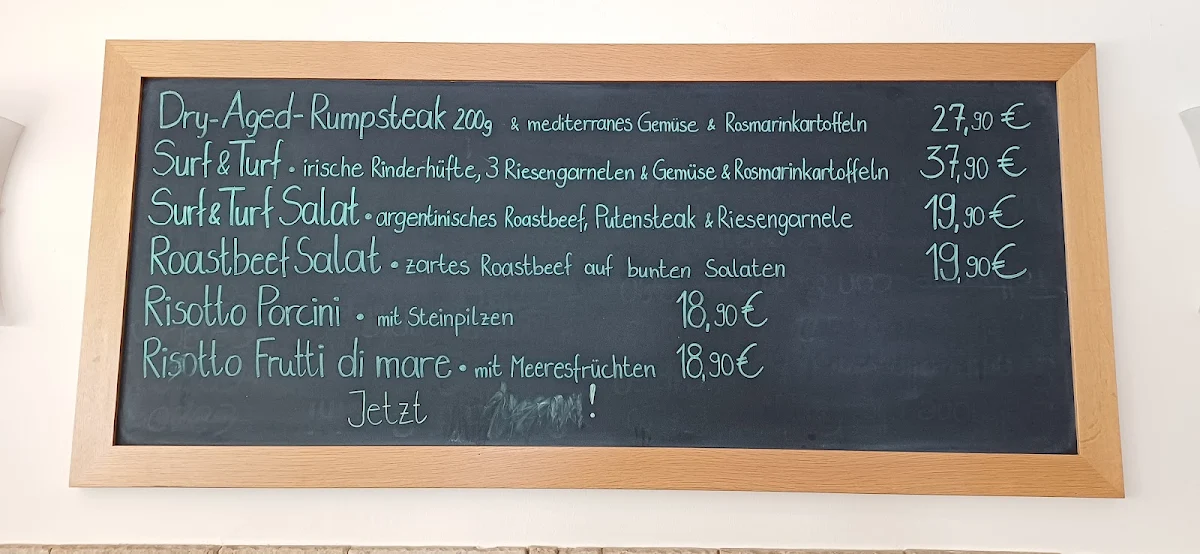 Dry-Aged-Rumpsteak 200g & mediterranes Gemüse & Rosmarinkartoffeln 27,90 €
Surf & Turf • irische Rinderhüfte, 3 Riesengarnelen & Gemüse & Rosmarinkartoffeln 37,90 €
Surf & Turf Salat • argentinisches Roastbeef, Putensteak & Riesengarnele 19,90 €
Roastbeef Salat • zartes Roastbeef auf bunten Salaten 19,90 €
Risotto Porcini • mit Steinpilzen 18,90 €
Risotto Frutti di mare • mit Meeresfrüchten 18,90 €
Jetzt !